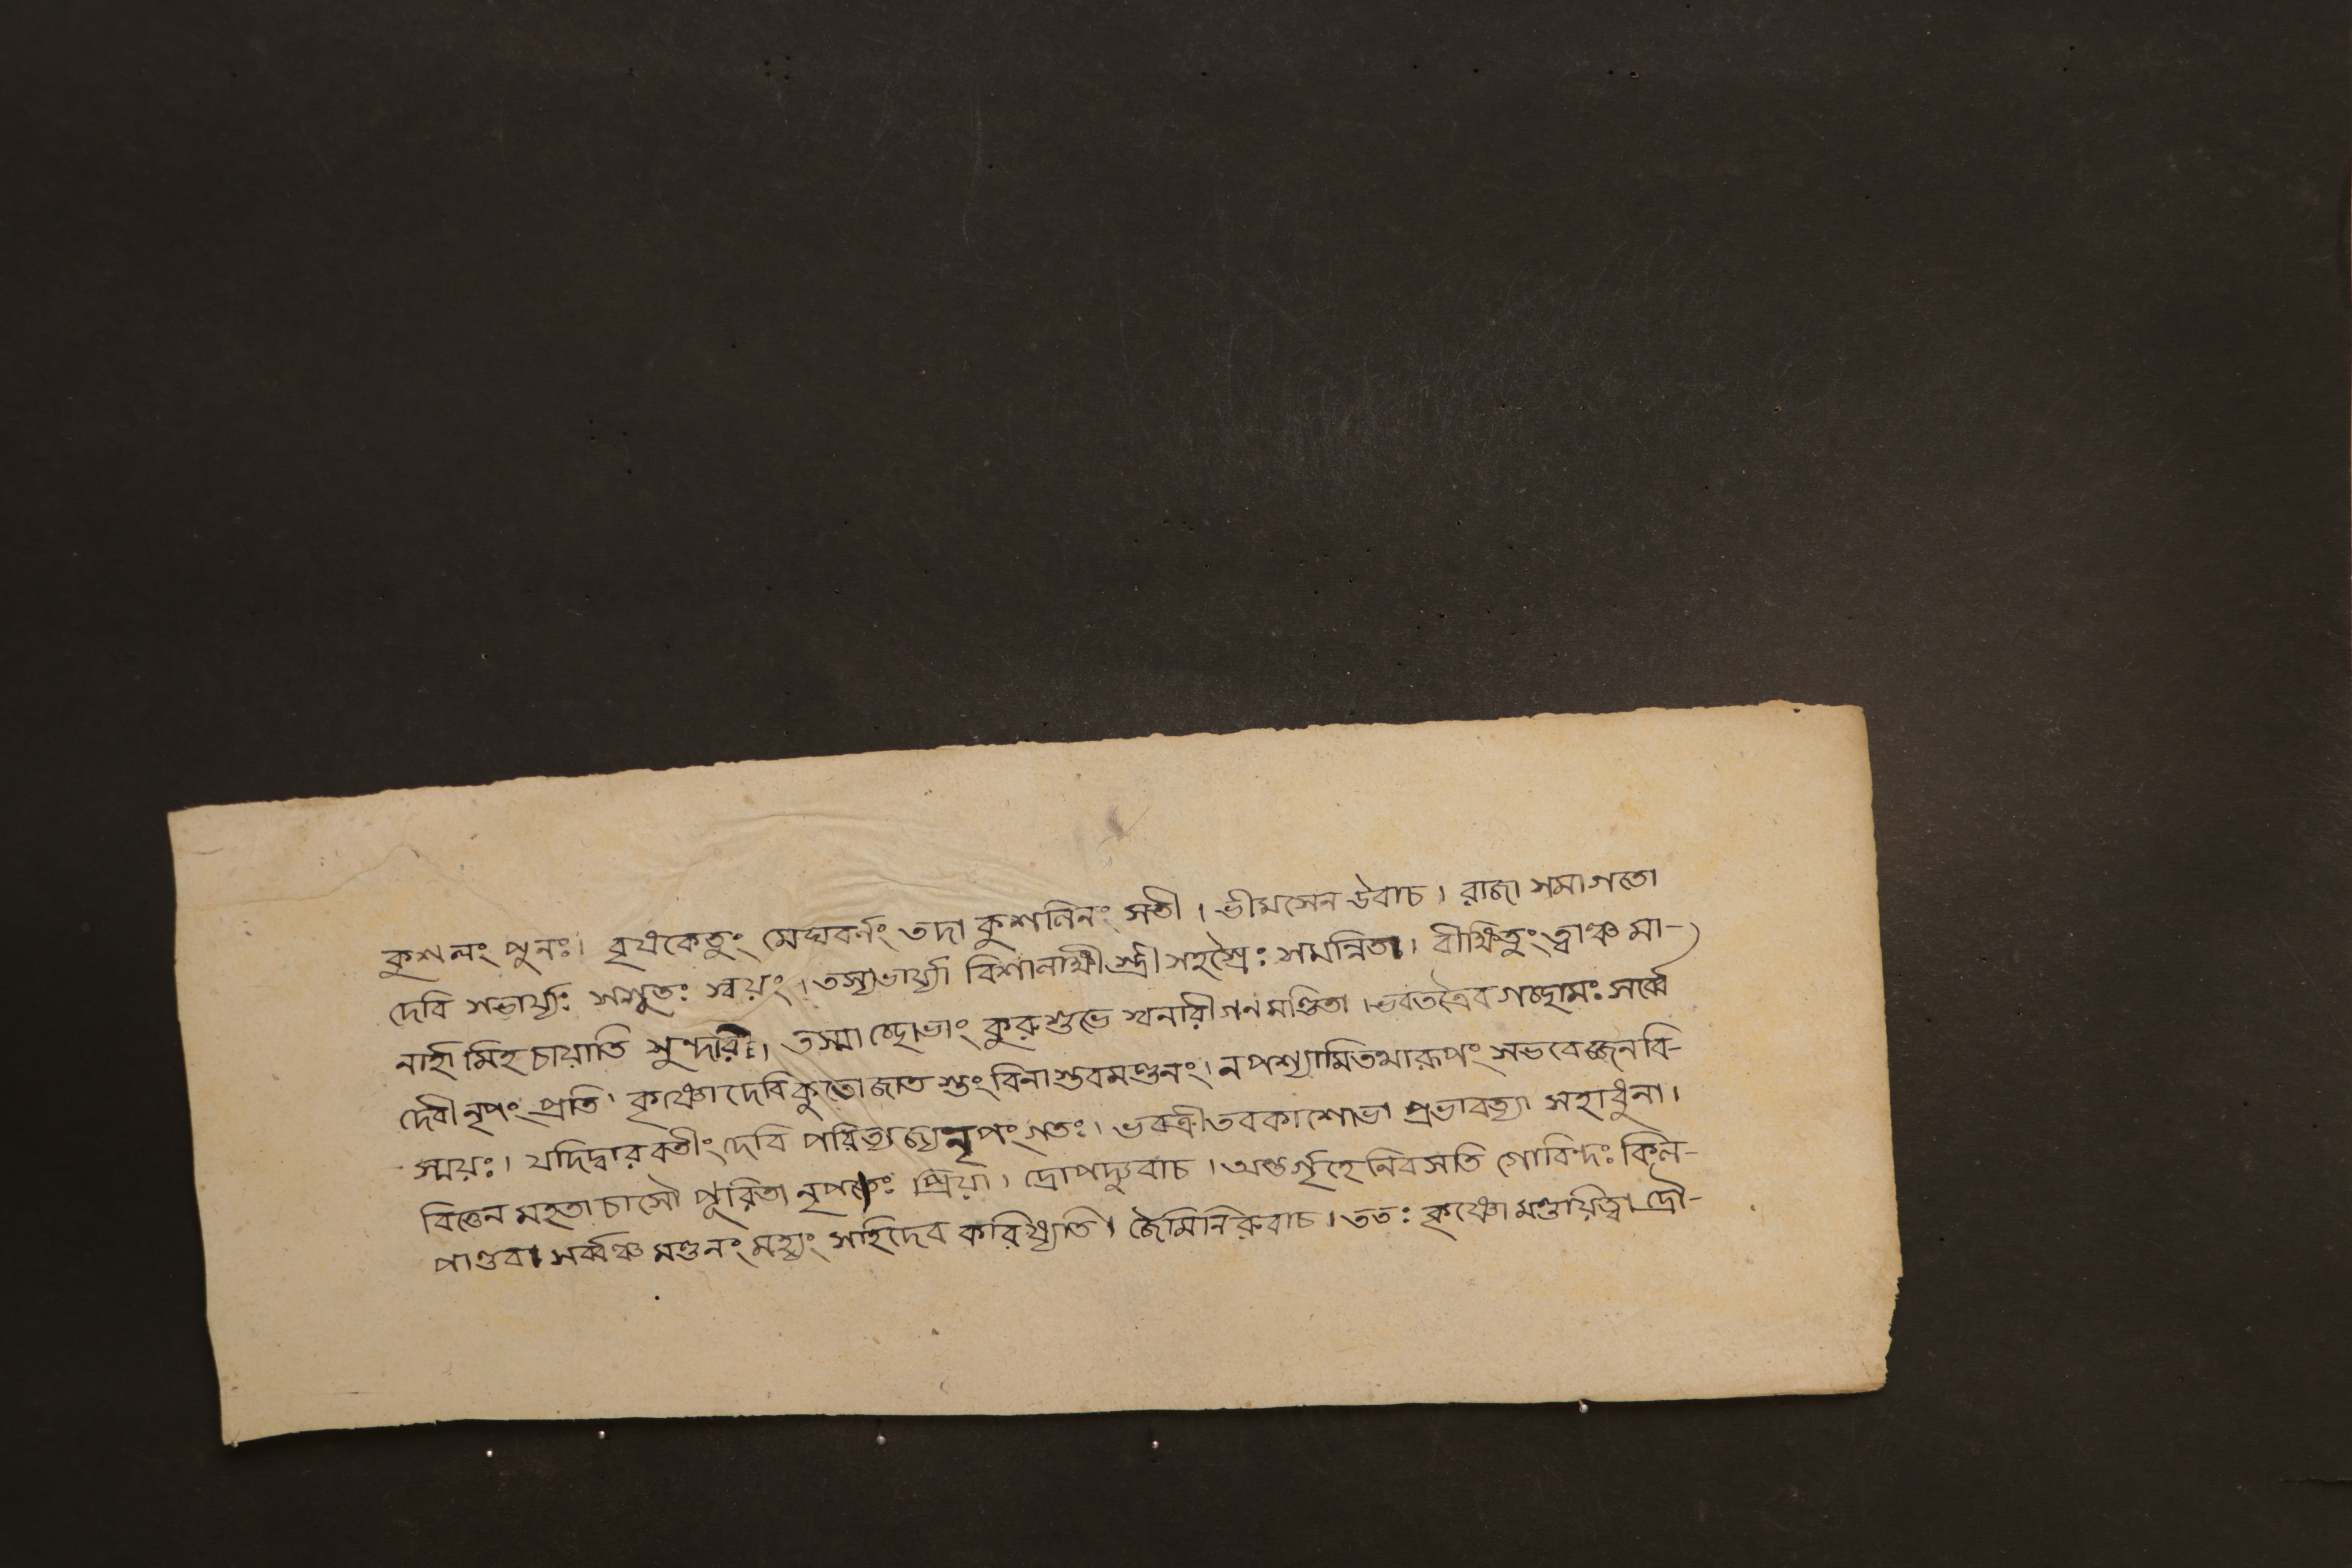 কুশলং পুনঃ। বৃষকেতুং মেঘবর্নং তদা কুশলিনং সতী। ভীমসেন উবাচ। রাজা সমাগতো
দেবি সভার্য্যঃ সসুতঃ স্বয়ং। তস্যভার্য্যা বিশালাক্ষী স্ত্রীসহস্রৈঃ সমন্নিতা। বীক্ষিতুং ত্বাঞ্চ মা-
নার্হা মিহ চায়াতি সুন্দরী। তস্মাচ্ছোভাং কুরুশুভে স্বনারীগন মণ্ডিতা। ভবতত্রৈব গচ্ছামঃ সর্ব্বে
দেবী নৃপং প্রতি। কৃষ্ণো দেবি কুতো জাত স্তং বিনাস্তবমণ্ডনং। ন পশ্যামিতথারূপং সভবেজ্জনবি-
স্ময়ঃ। যদিদ্বারবতীং দেবি পরিত্যজ্যনৃপং গতঃ। ভবত্রীতবকাশোভা প্রভাবত্যা সহাধুনা।
বিত্তেন মহতা চাসৌ পূরিতা নৃপতেঃ প্রিয়া। দ্রোপদ্যুবাচ। অন্তর্গৃহে নিবসতি গোবিন্দঃ কিল-
পাণ্ডবা সর্ব্বঞ্চ মণ্ডনং মহ্যং সহিদেব করিষ্যতি। জৈমিনিরুবাচ। ততঃ কৃষ্ণো মণ্ডয়িত্বা দ্রৌ-